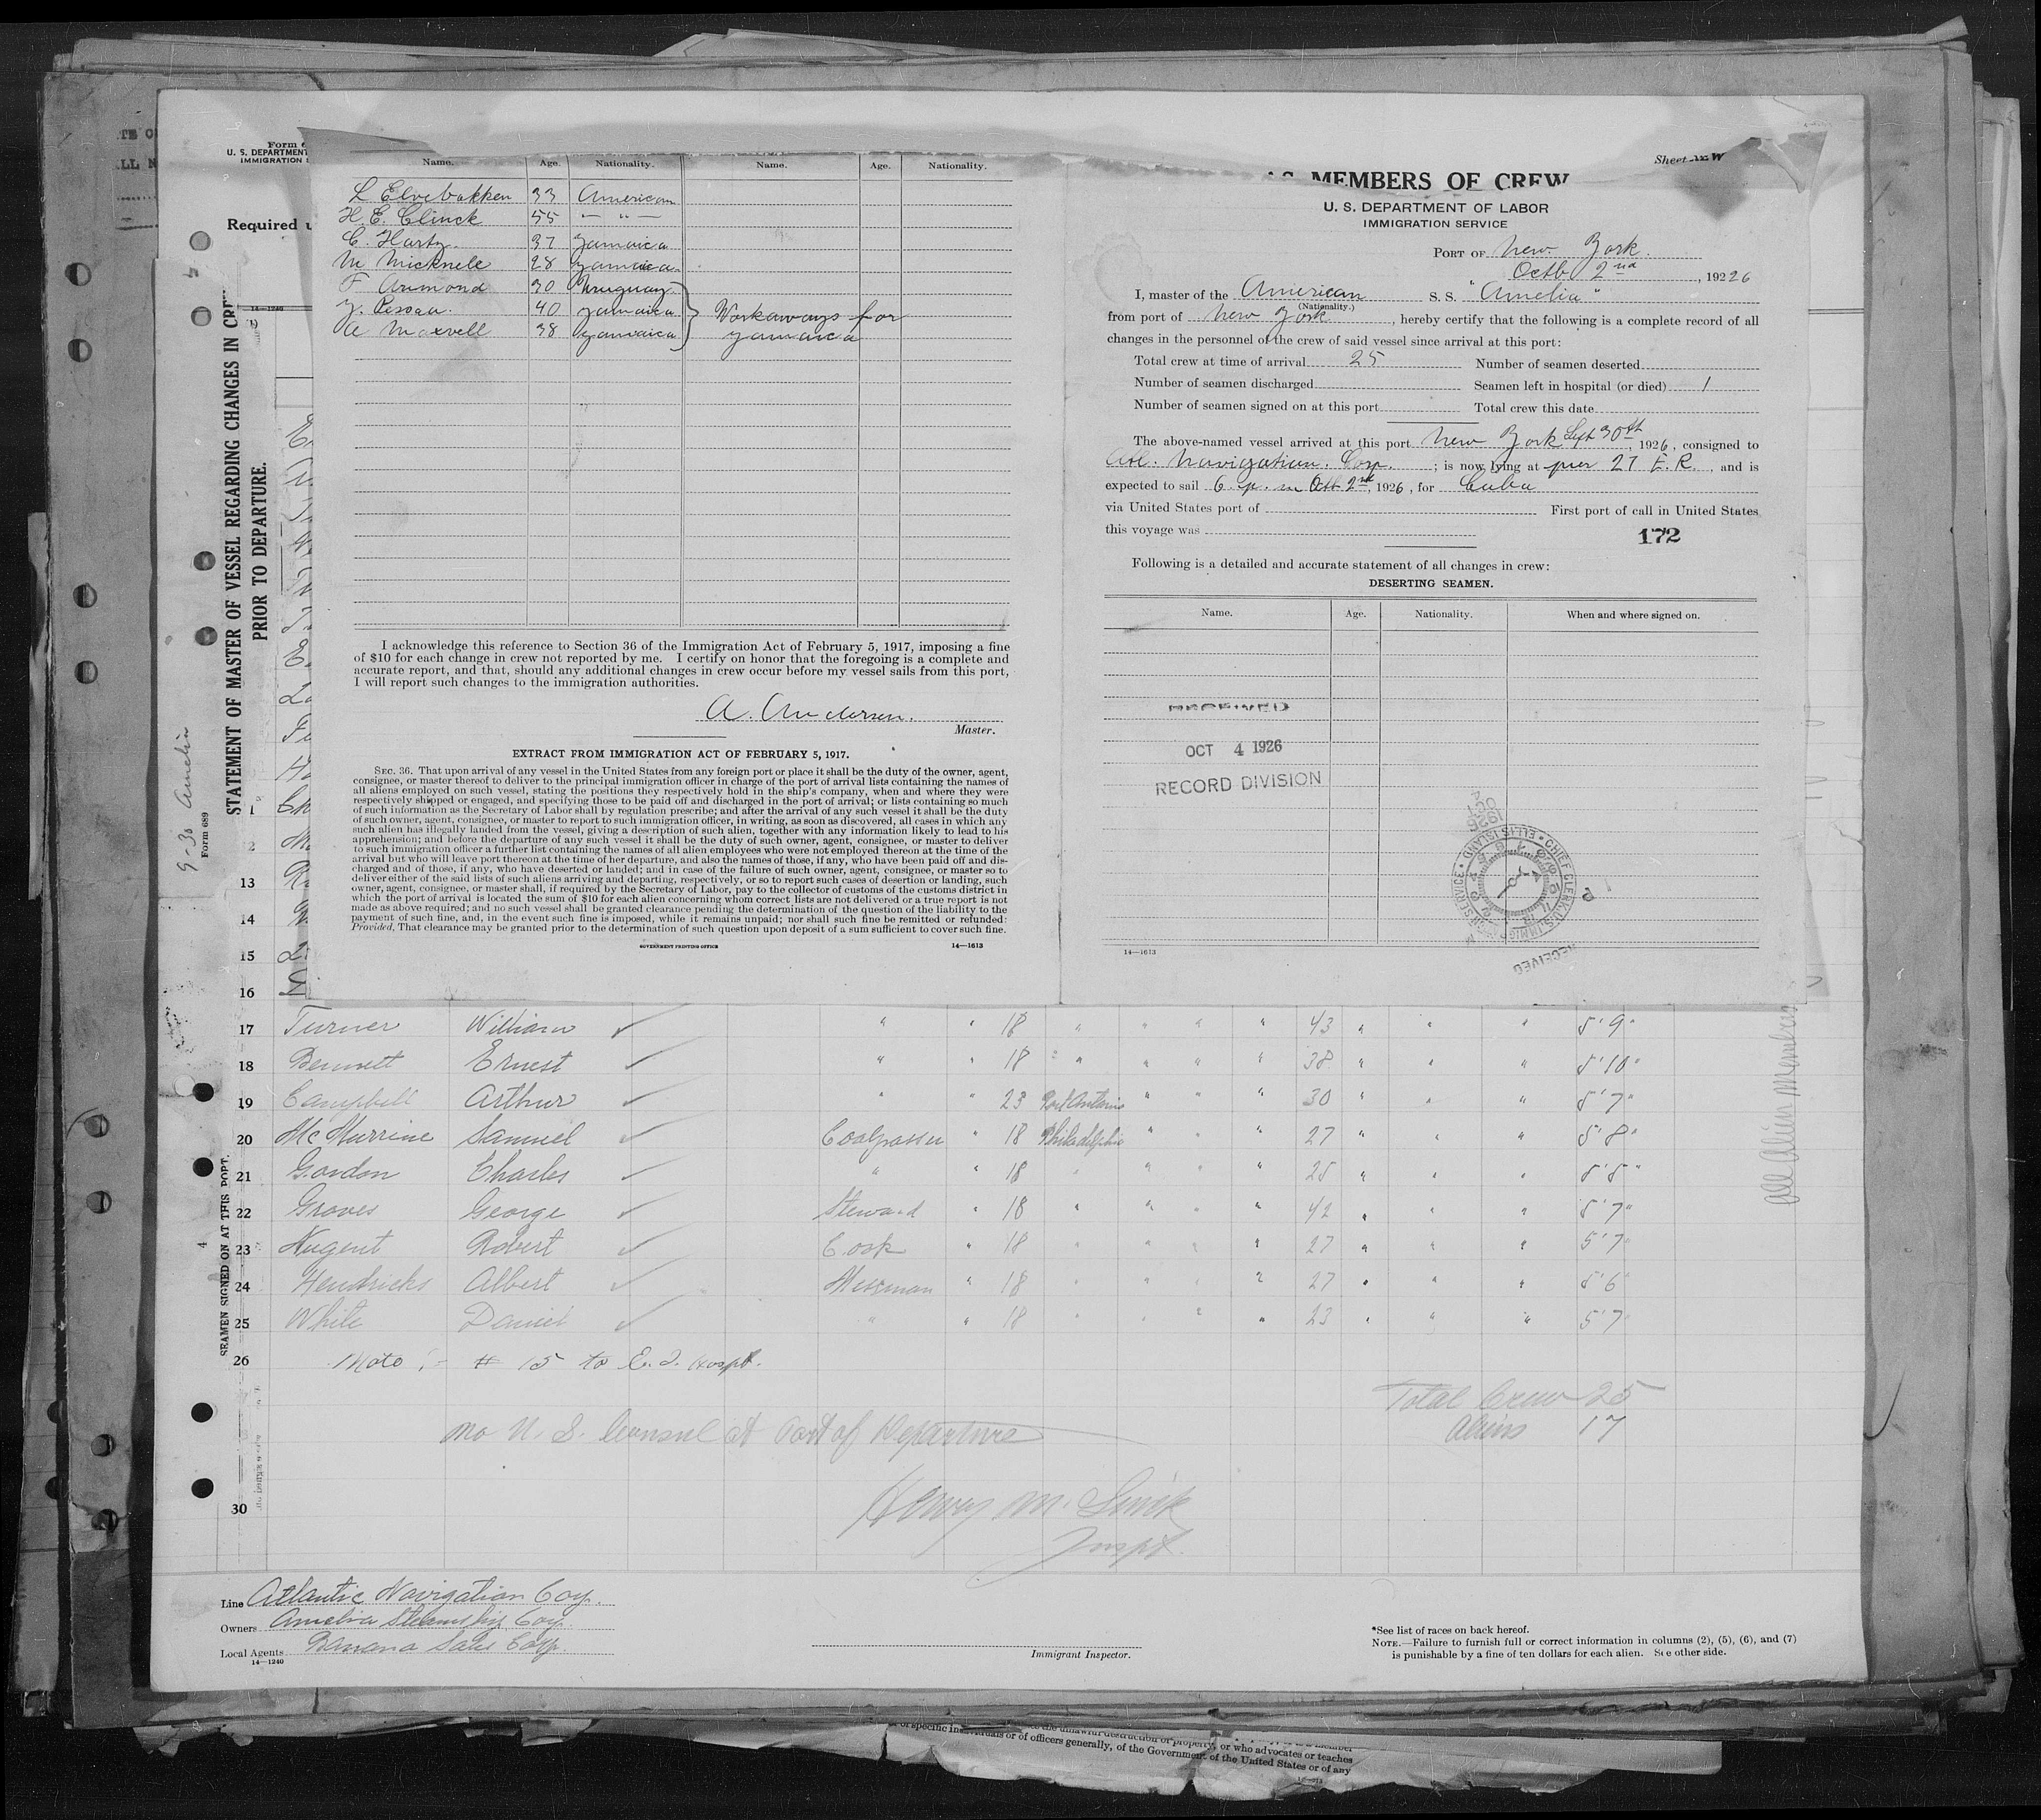 Form 6
U. S. DEPARTMENT
IMMIGRATION S
Required u
STATEMENT OF MASTER OF VESSEL REGARDING CHANGES IN CREW
PRIOR TO DEPARTURE.
9-30 Amelia
Form 689
14—1240
Name. Age. Nationality. Name. Age. Nationality.
L Elvebakken 33 American
H. E. Clinck 55 — " —
C. Hartz. 37 Jamaica
M Micknele 28 Jamaica
F Armond 30 Uruguay
J. Pessaa. 40 Jamaika
A Maxvell 38 Jamaica
Workaways for
Jamaica
I acknowledge this reference to Section 36 of the Immigration Act of February 5, 1917, imposing a fine
of $10 for each change in crew not reported by me. I certify on honor that the foregoing is a complete and
accurate report, and that, should any additional changes in crew occur before my vessel sails from this port,
I will report such changes to the immigration authorities.
A. Andersen.
Master.
EXTRACT FROM IMMIGRATION ACT OF FEBRUARY 5, 1917.
SEC. 36. That upon arrival of any vessel in the United States from any foreign port or place it shall be the duty of the owner, agent,
consignee, or master thereof to deliver to the principal immigration officer in charge of the port of arrival lists containing the names of
all aliens employed on such vessel, stating the positions they respectively hold in the ship's company, when and where they were
respectively shipped or engaged, and specifying those to be paid off and discharged in the port of arrival; or lists containing so much
of such information as the Secretary of Labor shall by regulation prescribe; and after the arrival of any such vessel it shall be the duty
of such owner, agent, consignee, or master to report to such immigration officer, in writing, as soon as discovered, all cases in which any
such alien has illegally landed from the vessel, giving a description of such alien, together with any information likely to lead to his
apprehension; and before the departure of any such vessel it shall be the duty of such owner, agent, consignee, or master to deliver
to such immigration officer a further list containing the names of all alien employees who were not employed thereon at the time of the
arrival but who will leave port thereon at the time of her departure, and also the names of those, if any, who have been paid off and dis-
charged and of those, if any, who have deserted or landed; and in case of the failure of such owner, agent, consignee, or master so to
deliver either of the said lists of such aliens arriving and departing, respectively, or so to report such cases of desertion or landing, such
owner, agent, consignee, or master shall, if required by the Secretary of Labor, pay to the collector of customs of the customs district in
which the port of arrival is located the sum of $10 for each alien concerning whom correct lists are not delivered or a true report is not
made as above required; and no such vessel shall be granted clearance pending the determination of the question of the liability to the
payment of such fine, and, in the event such fine is imposed, while it remains unpaid; nor shall such fine be remitted or refunded:
Provided, That clearance may be granted prior to the determination of such question upon deposit of a sum sufficient to cover such fine.
GOVERNMENT PRINTING OFFICE 14—1613
Sheet
AS MEMBERS OF CREW
U. S. DEPARTMENT OF LABOR
IMMIGRATION SERVICE
PORT OF New York.
Octb 2nd, 1926
I, master of the American S. S. "Amelia"
(Nationality.)
from port of New York, hereby certify that the following is a complete record of all
changes in the personnel of the crew of said vessel since arrival at this port:
Total crew at time of arrival 25 Number of seamen deserted
Number of seamen discharged Seamen left in hospital (or died) 1
Number of seamen signed on at this port Total crew this date
The above-named vessel arrived at this port New York Sept 30th, 1926, consigned to
Atl. Navigation. Corp. ; is now lying at pier 27 E. R., and is
expected to sail 6 p. m Octb 2nd, 1926, for Cuba
via United States port of First port of call in United States
this voyage was
172
Following is a detailed and accurate statement of all changes in crew:
DESERTING SEAMEN.
Name. Age. Nationality. When and where signed on.
RECEIVED
OCT 4 1926
RECORD DIVISION
CHIEF CLERK U.S. IMMIGRATION SERVICE ELLIS ISLAND
RECEIVED
14—1613
13
14
15
16
17 Turner William ✓ " " 18 " " " " 43 " " " 5'9"
18 Bennett Ernest ✓ " " 18 " " " " 38 " " " 5'10"
19 Campbell Arthur ✓ " " 23 Port Antonio " " " 30 " " " 5'7"
20 McMurrine Samuel ✓ Coalpasser " 18 Philadelphia " " " 27 " " " 5'8"
21 Gordon Charles ✓ " " 18 " " " " 25 " " " 5'5"
22 Groves George ✓ Steward " 18 " " " " 42 " " " 5'7"
23 Nugent Robert ✓ Cook " 18 " " " " 27 " " " 5'7
24 Hendricks Albert ✓ Messman " 18 " " " " 27 " " " 5'6
25 White Daniel ✓ " " 18 " " " " 23 " " " 5'7
26 Note :- # 15 to E. I. Hospt.
Total Crew 25
Aliens 17
No U. S. Consul at Port of Departure
Henry M.
Inspt.
30
SEAMEN SIGNED ON AT THIS PORT. 4
All Alien Members
Line Atlantic Navigation Coy.
Owners Amelia Steamship Coy
Local Agents Banana Sales Corp.
14—1240
Immigrant Inspector.
*See list of races on back hereof.
NOTE.—Failure to furnish full or correct information in columns (2), (5), (6), and (7)
is punishable by a fine of ten dollars for each alien. See other side.
property, or who advocates or teaches
of specific individuals or of officers generally, of the Government of the United States or of any